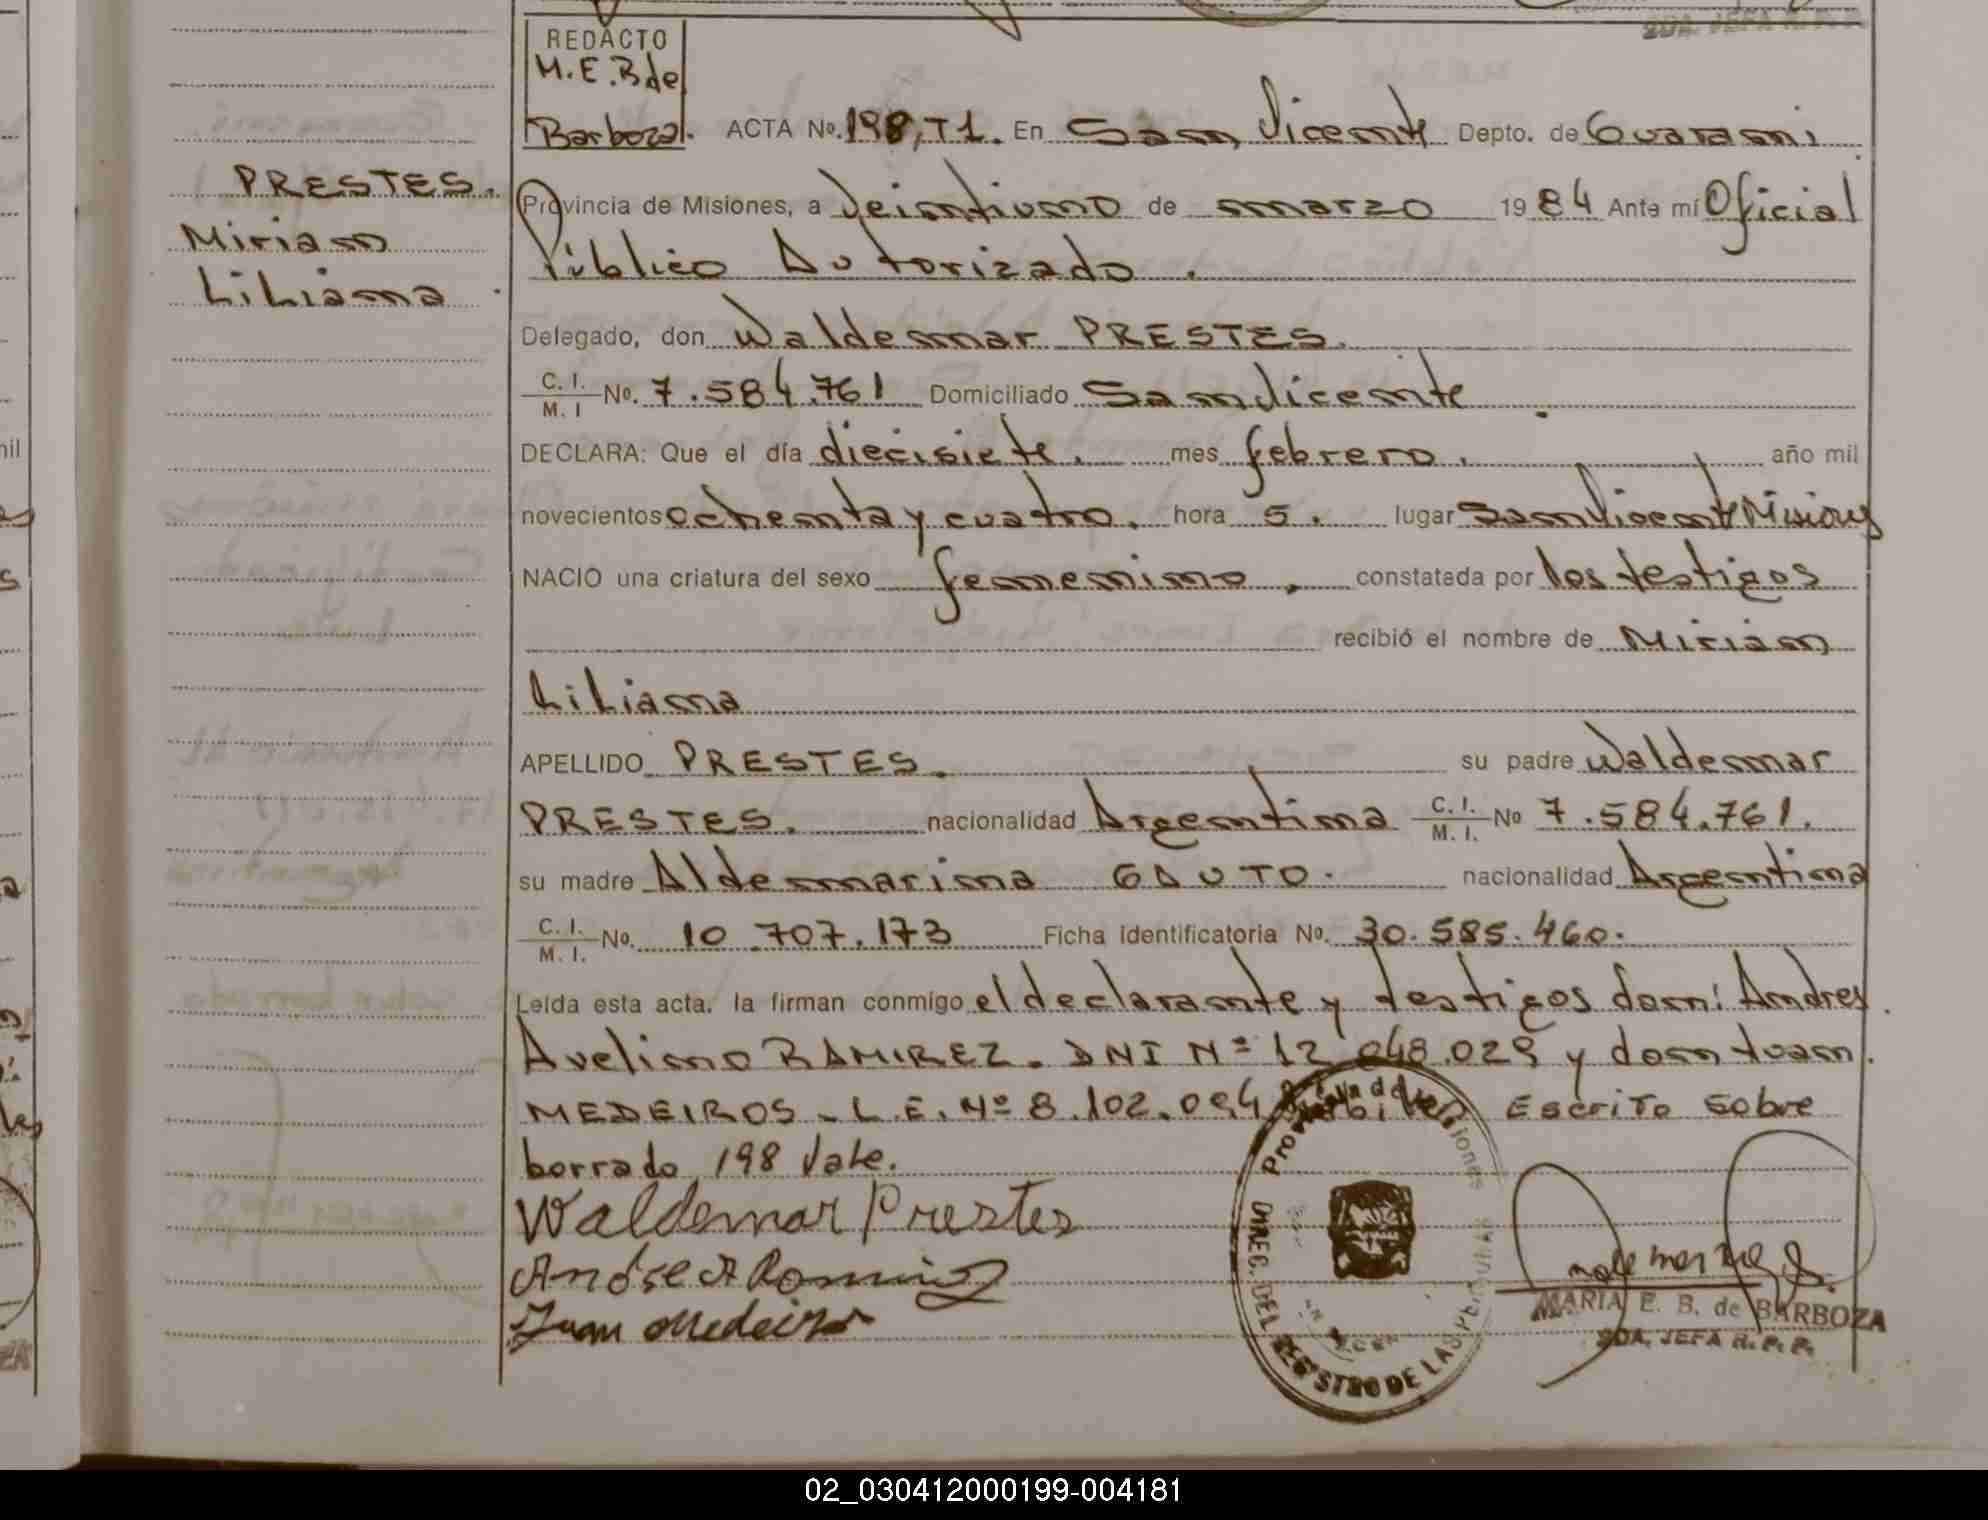 SDA. JEFA R. P. P.
REDACTO
M.E.B de
Barboza.
ACTA No. 198, T1. En San Vicente Depto. de Guarani
PRESTES.
Miriam
Liliana
Provincia de Misiones, a Veintiuno de marzo 1984 Ante mí Oficial
Público Autorizado.
Delegado, don Waldemar PRESTES.
C. I. / M. I No. 7.584.761 Domiciliado San Vicente
DECLARA: Que el día diecisiete. mes febrero. año mil
novecientos ochenta y cuatro. hora 5. lugar San Vicente Misiones
NACIO una criatura del sexo femenino, constatada por los testigos
recibió el nombre de Miriam
Liliana
APELLIDO PRESTES. su padre Waldemar
PRESTES. nacionalidad Argentina C. I. / M. I. No 7.584.761.
su madre Aldemarina GAUTO. nacionalidad Argentina
C. I. / M. I. No. 10.707.173 Ficha identificatoria No. 30.585.460.
Leída esta acta, la firman conmigo el declarante y testigos don: Andres
Avelino RAMIREZ. DNI Nº 12.048.029 y don Juan
MEDEIROS - L.E. Nº 8.102.094 Escrito sobre
borrado 198 Vale.
Waldemar Prestes
Juan Medeiros
Provincia de Misiones
DIREC. DEL REGISTRO DE LAS PERSONAS
MARIA E. B. de BARBOZA
SDA. JEFA R. P. P.
02_030412000199-004181